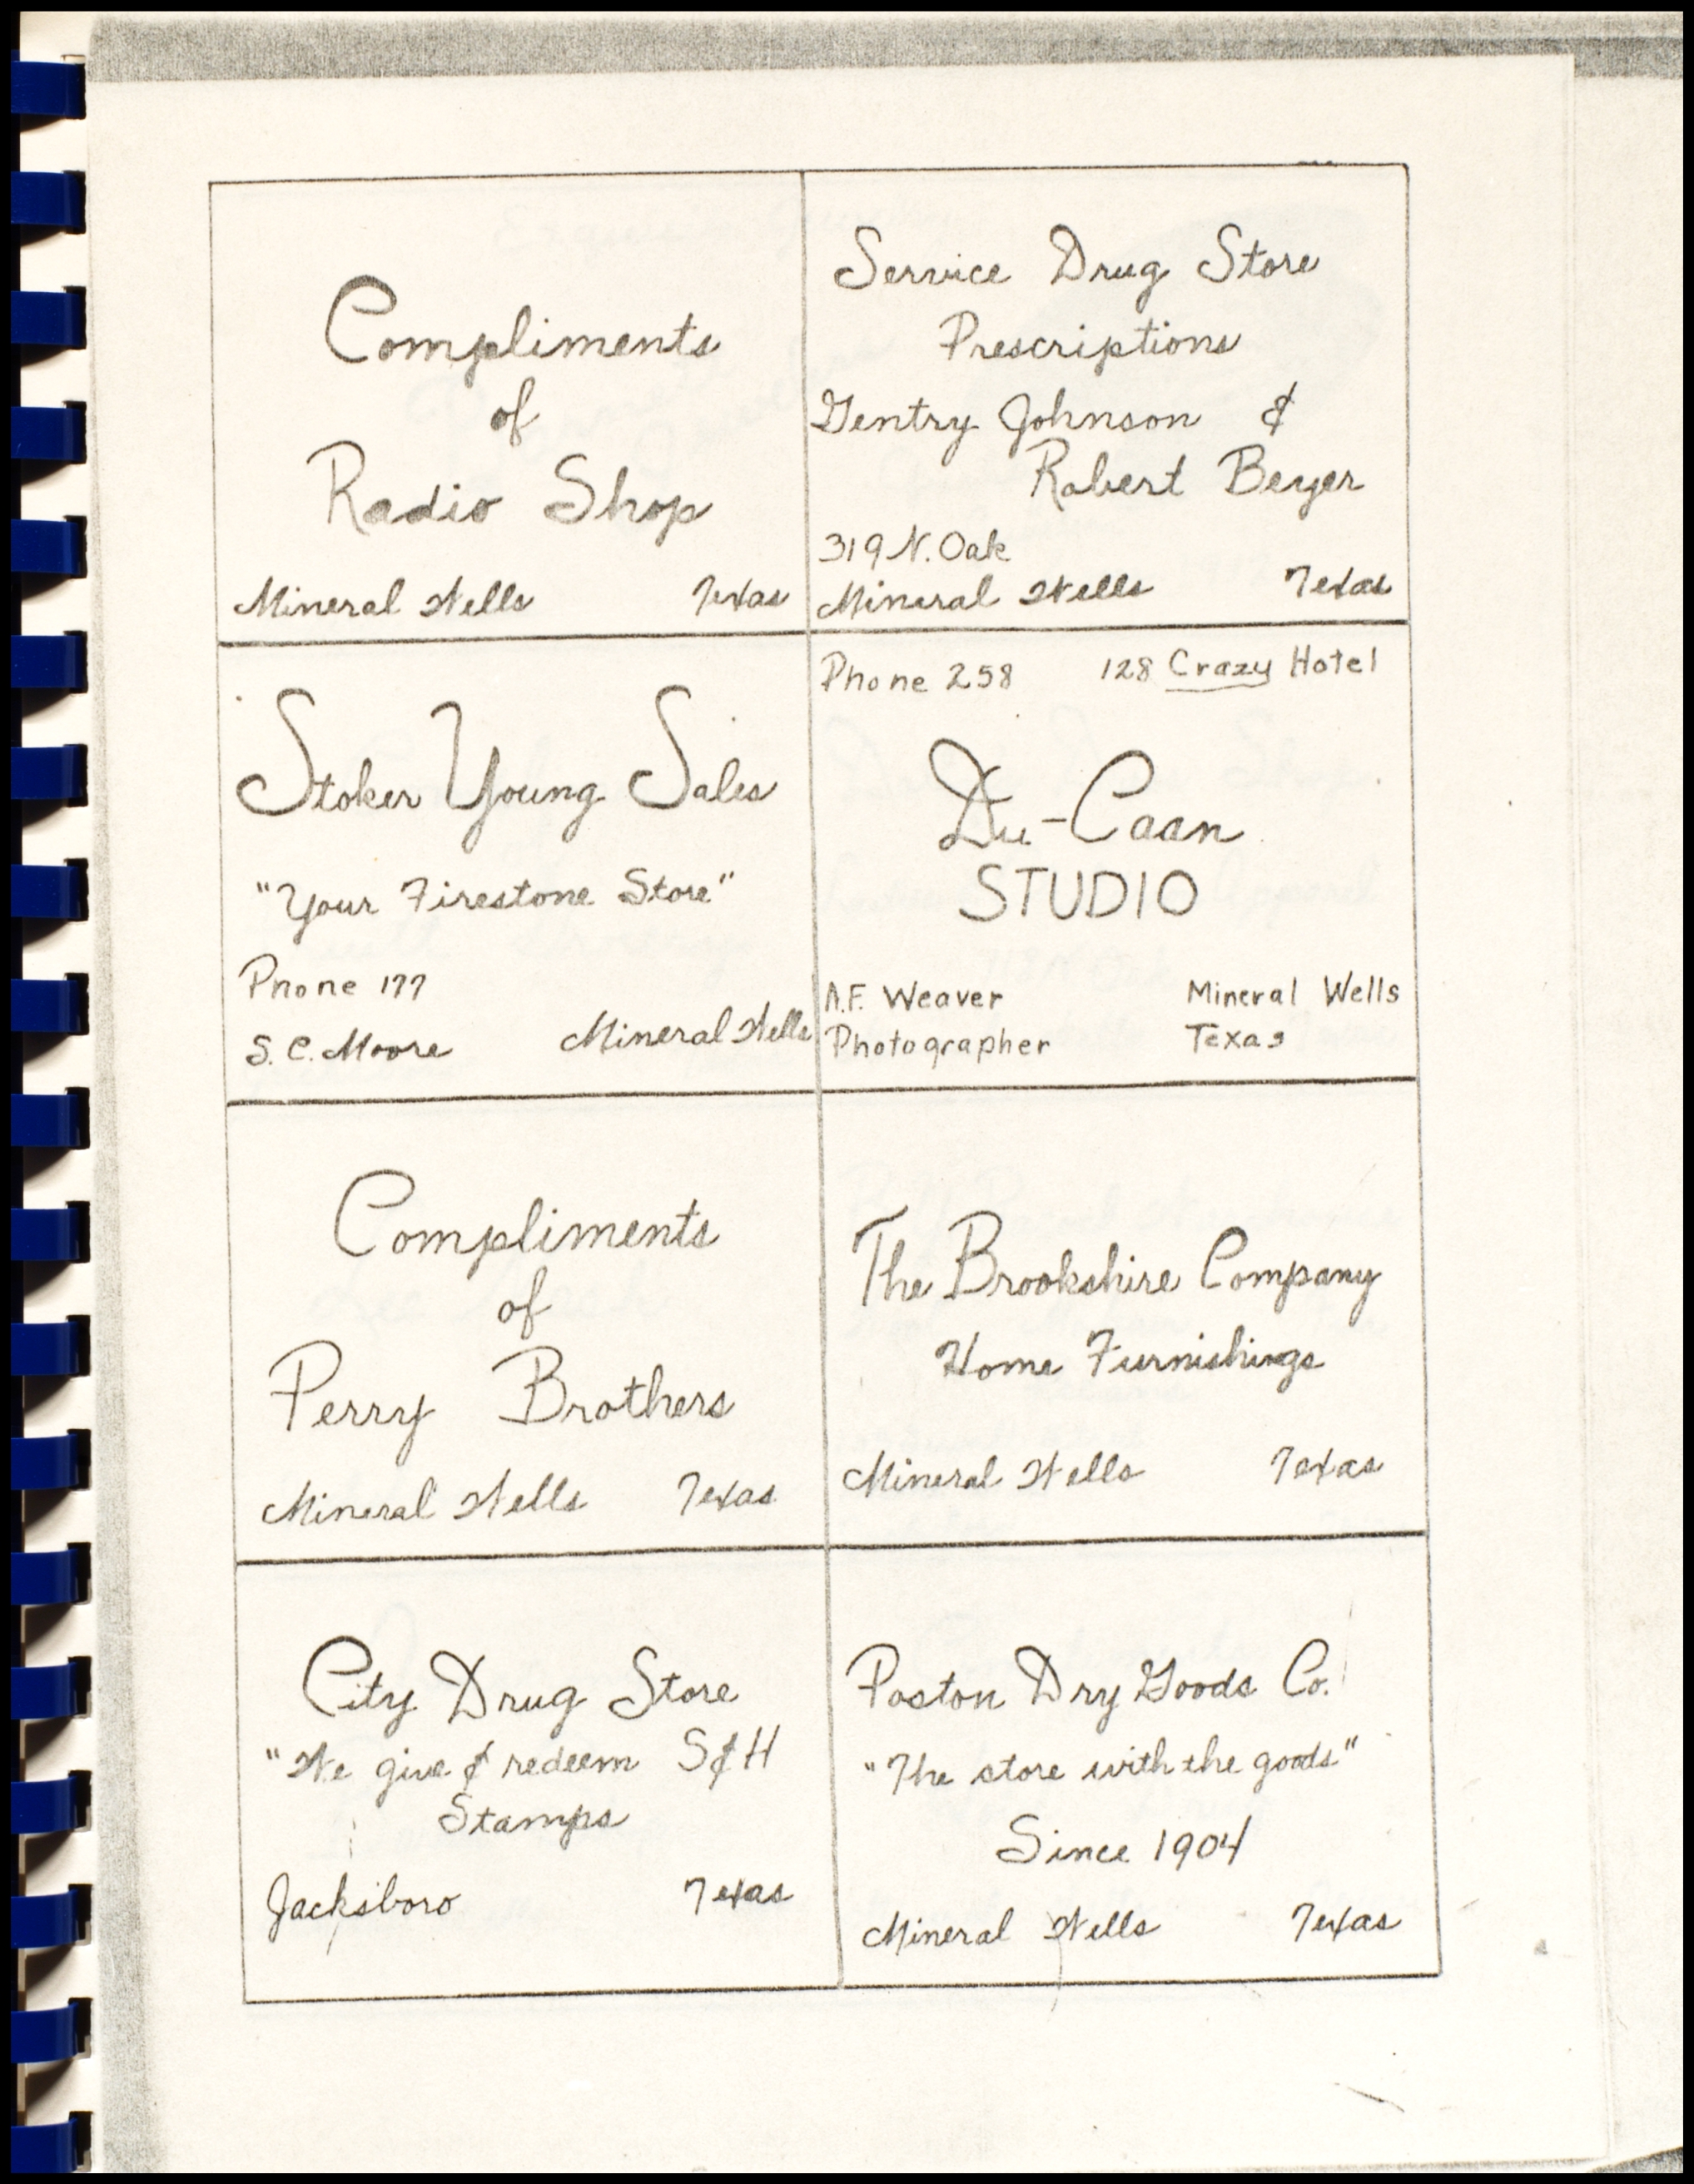 Compliments
of
Radio Shop
Mineral Wells Texas
Service Drug Store
Prescriptions
Gentry Johnson &
Robert Beyer
319 N. Oak
Mineral Wells Texas
Stoker Young Sales
"Your Firestone Store"
Phone 177
S. C. Moore Mineral Wells
Phone 258 128 Crazy Hotel
Du-Caan
STUDIO
A.F. Weaver Mineral Wells
Photographer Texas
Compliments
of
Perry Brothers
Mineral Wells Texas
The Brookshire Company
Home Furnishings
Mineral Wells Texas
City Drug Store
"We give & redeem S&H
Stamps
Jacksboro Texas
Poston Dry Goods Co.
"The store with the goods"
Since 1904
Mineral Wells Texas